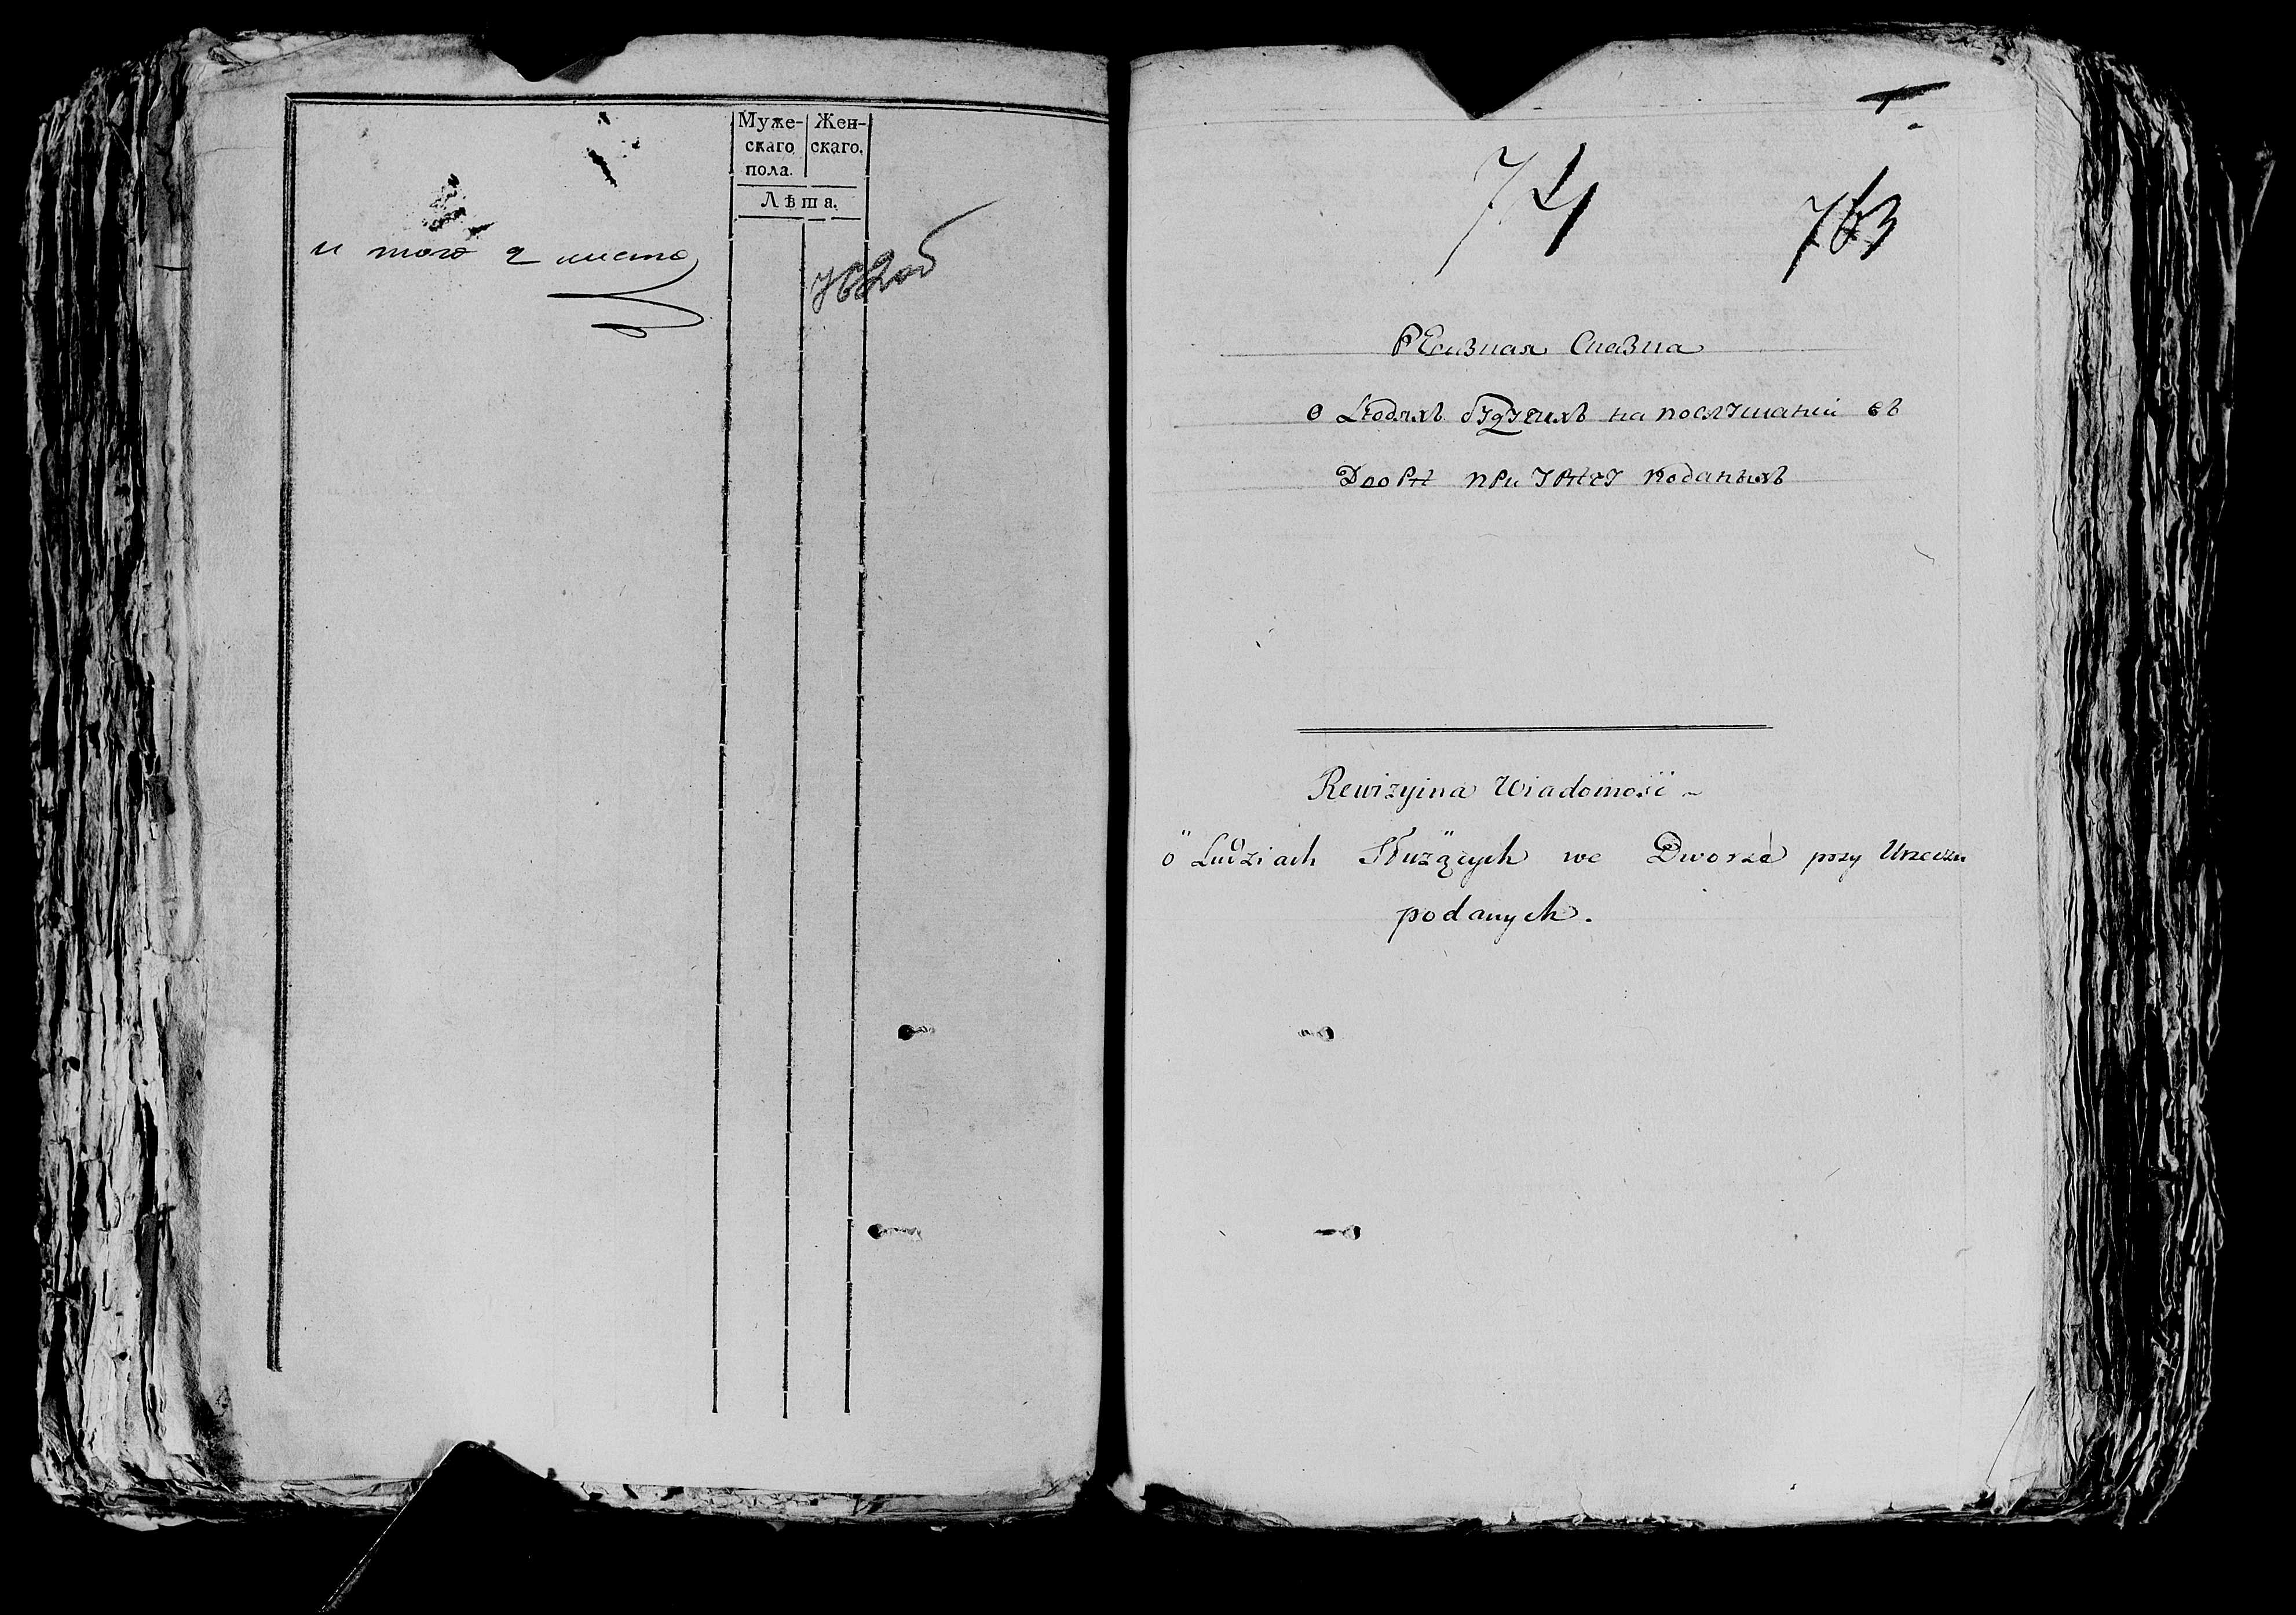 Муже-
скаго
пола.
Жен-
скаго.
Лѣта.
и того 2 листа
762 об
74
763
Ревизная Сказка
о Людяхъ будучихъ на послушаніи въ
Дворѣ при Урѣчу поданыхъ
Rewizyina Wiadomość
o Ludziach Służących we Dworze przy Urzeczu
podanych.